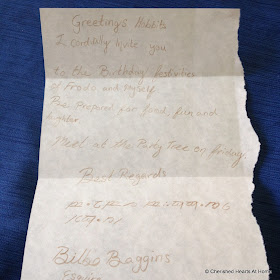 Greetings Hobbits
I cordially invite you
to the Birthday festivities
of Frodo and myself
Be prepared for food, fun and
Meet at the Party Tree on friday.
Best Regards
Bilbo Baggins
Esquire
© Cherished Hearts At Home